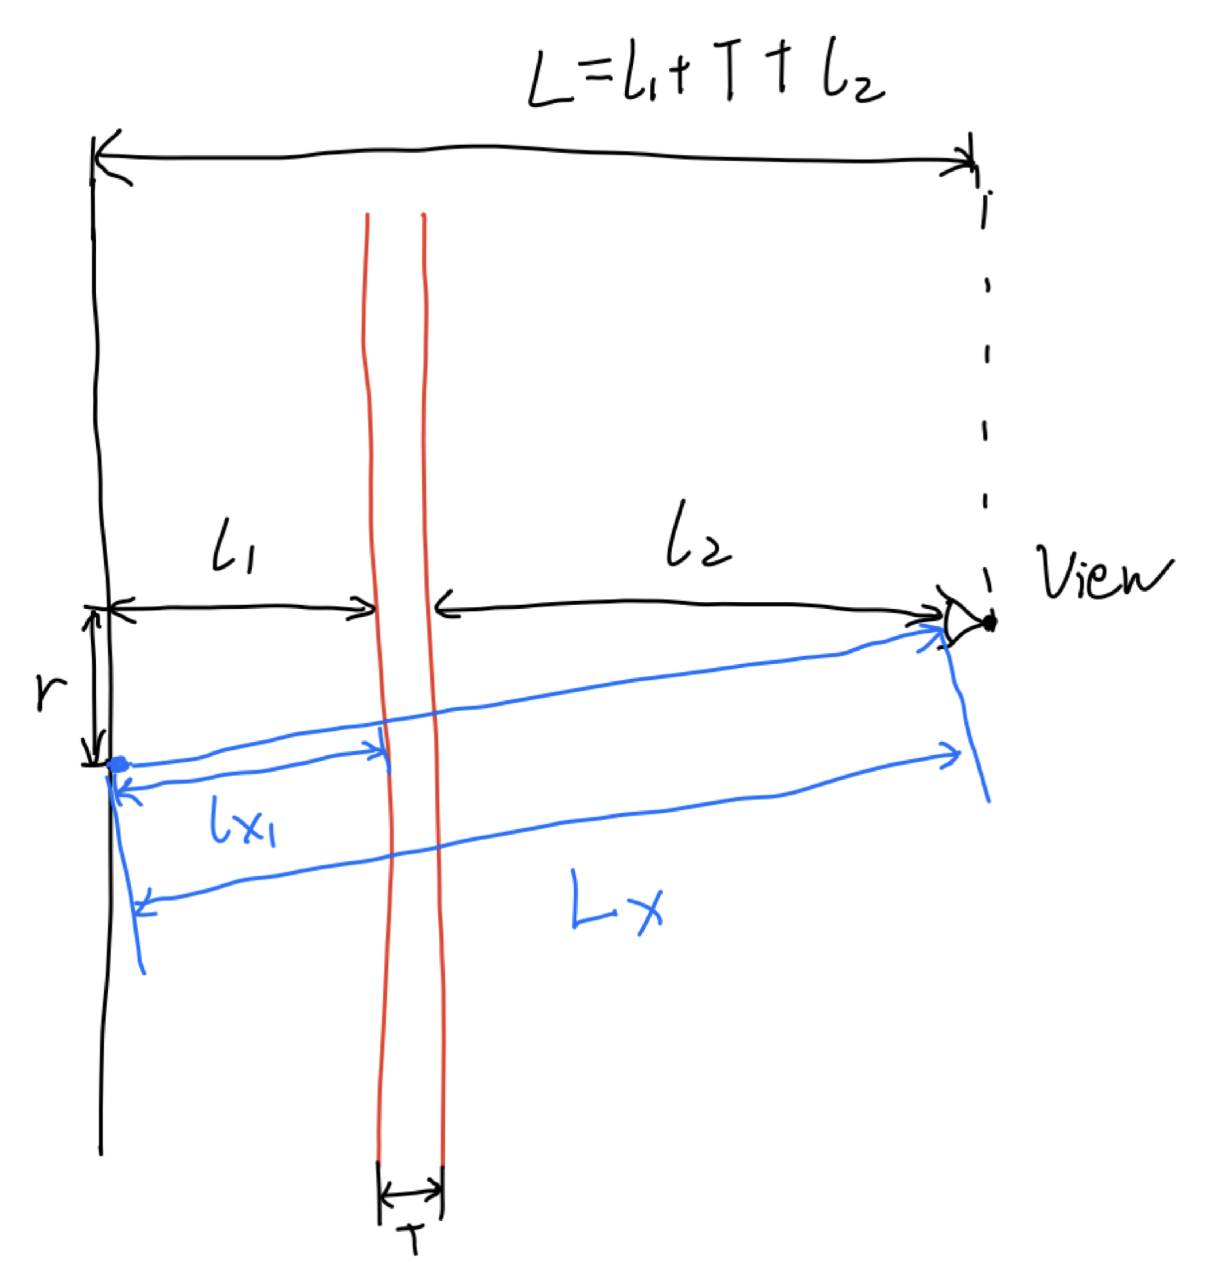 L=l₁+T+l₂
l₁
l₂
View
r
lx₁
Lx
T